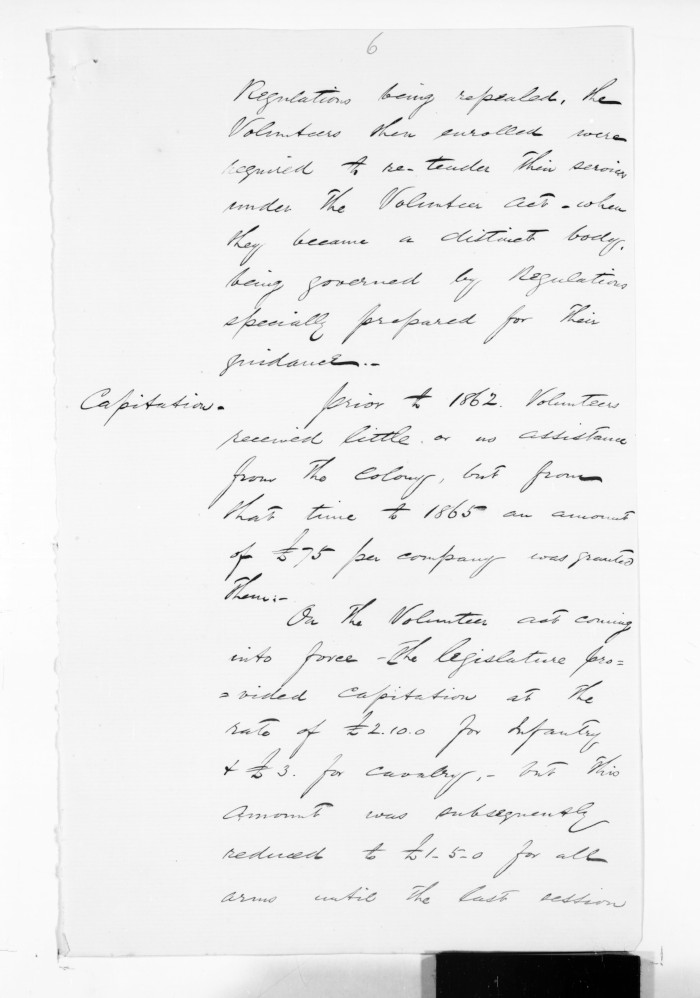 6
Regulations being repealed, the
Volunteers then enrolled were
required to re-tender their services
under the Volunteer Act - when
they became a distinct body,
being governed by Regulations
specially prepared for their
guidance.-
Capitation - Prior to 1862. Volunteers
received little or no assistance
from the colony, but from
that time to 1865 an amount
of £75 per company was granted
them:-
On the Volunteer act coming
into force - the legislature pro=
=vided capitation at the
rate of £2.10.0 for Infantry
& £3. for cavalry, - but this
amount was subsequently
reduced to £1-5-0 for all
arms until the last session